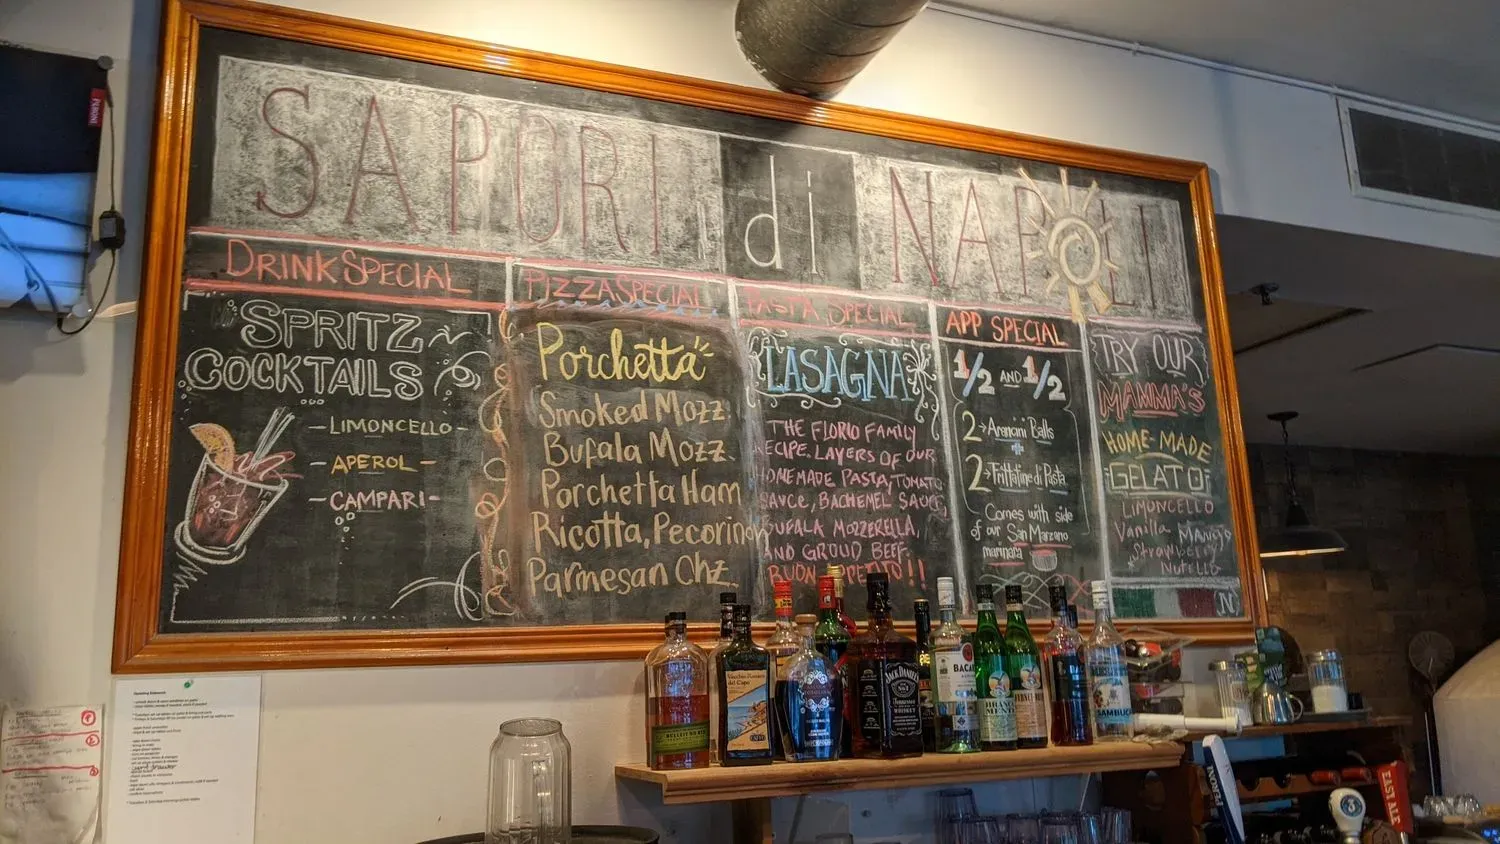 SAPORI di NAPOLI
DRINK SPECIAL
SPRITZ
COCKTAILS
- LIMONCELLO -
- APEROL -
- CAMPARI -
PIZZA SPECIAL
Porchetta
Smoked Mozz.
Bufala Mozz.
Porchetta Ham
Ricotta, Pecorino,
Parmesan Chz.
PASTA SPECIAL
LASAGNA
THE FLORIO FAMILY
RECIPE. LAYERS OF OUR
HOMEMADE PASTA, TOMATO
SAUCE, BACHEMEL SAUCE,
BUFALA MOZZERELLA,
AND GROUD BEEF.
BUON APPETITO!!
APP SPECIAL
1/2 AND 1/2
2 → Arancini Balls
+
2 → Frittatine di Pasta
Comes with side
of our San Marzano
marinara
TRY OUR
MAMMA'S
HOME-MADE
GELATO!
LIMONCELLO
Vanilla MANGO
Strawberry
Nutella
N
PERONI
BULLEIT RYE
Vecchio Amaro
del Capo
JACK DANIEL'S
Tennessee
WHISKEY
BACARDI
BRANCA
MENTA
SAMBUCA
PERONI
3
EAST ALE